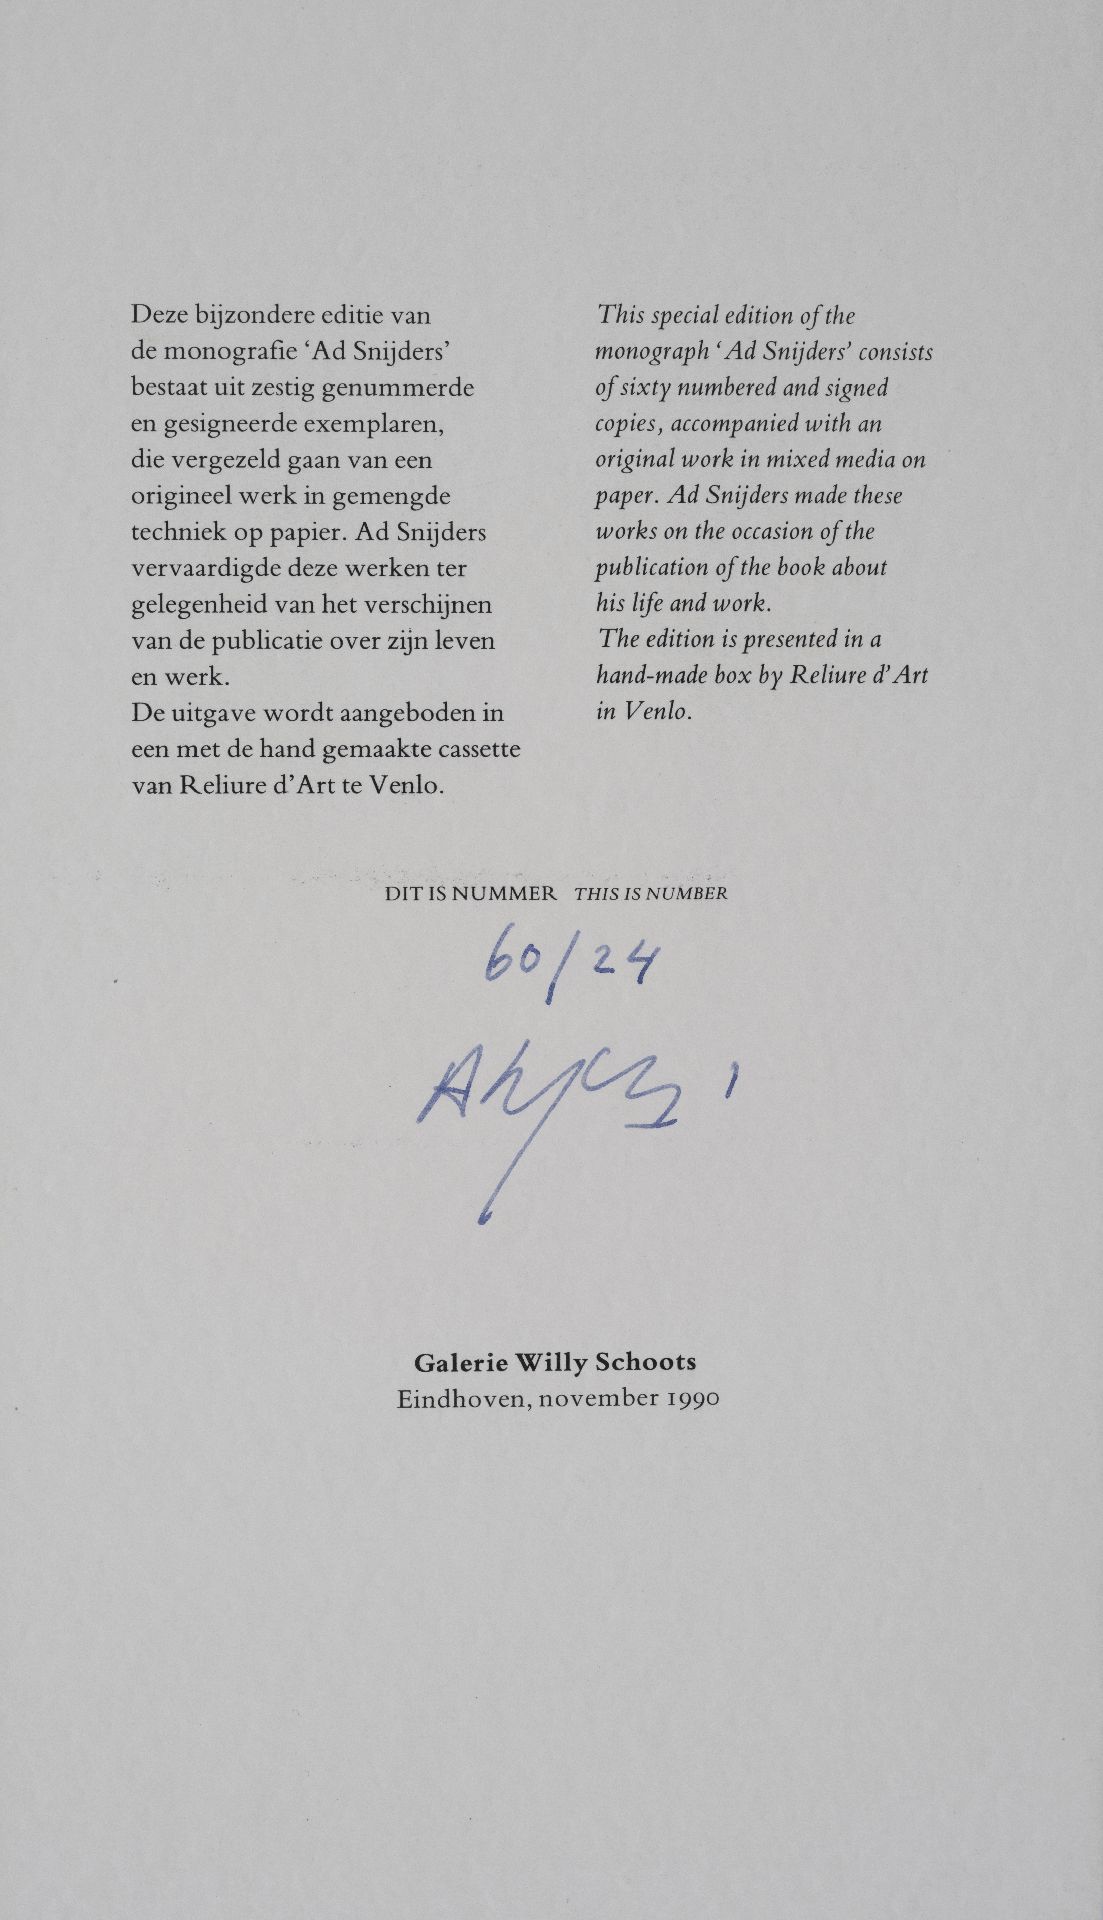 Deze bijzondere editie van
de monografie ‘Ad Snijders’
bestaat uit zestig genummerde
en gesigneerde exemplaren,
die vergezeld gaan van een
origineel werk in gemengde
techniek op papier. Ad Snijders
vervaardigde deze werken ter
gelegenheid van het verschijnen
van de publicatie over zijn leven
en werk.
De uitgave wordt aangeboden in
een met de hand gemaakte cassette
van Reliure d’Art te Venlo.
This special edition of the
monograph ‘Ad Snijders’ consists
of sixty numbered and signed
copies, accompanied with an
original work in mixed media on
paper. Ad Snijders made these
works on the occasion of the
publication of the book about
his life and work.
The edition is presented in a
hand-made box by Reliure d’Art
in Venlo.
DIT IS NUMMER THIS IS NUMBER
60/24
Galerie Willy Schoots
Eindhoven, november 1990